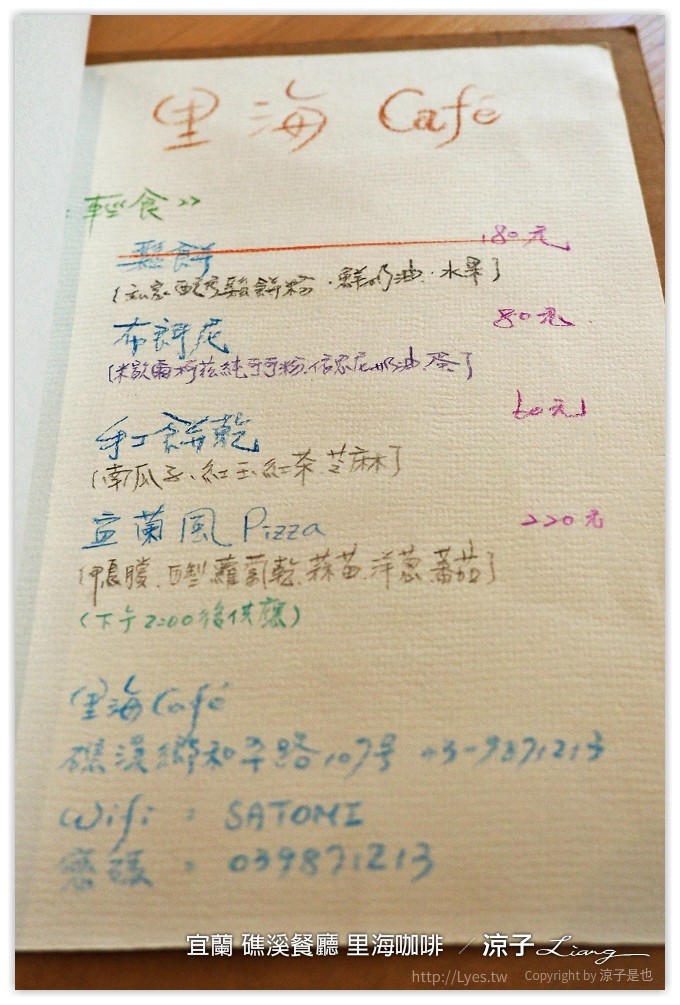 里海 Café
輕食>>
鬆餅 180元
(私家配方鬆餅粉.鮮奶油.水果)
布朗尼 80元
(米歇爾柯茲純可可粉.伯恩尼奶油.蛋)
手工餅乾 60元
(南瓜子、紅玉紅茶.芝麻)
宜蘭風Pizza 220元
(鴨賞.白蘿蔔乾.蒜苗.洋蔥.蕃茄)
(下午2:00後供應)
里海Café
礁溪鄉和平路107號 03-9871213
Wifi : SATOMI
密碼 : 039871213
宜蘭 礁溪餐廳 里海咖啡 ／涼子Liang
http://Lyes.tw Copyright by 涼子是也